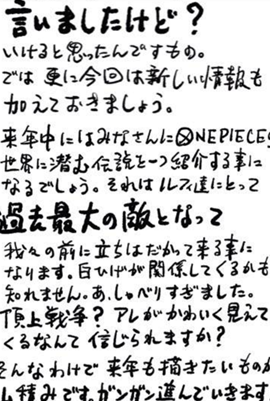 言いましたけど?
いけると思ったんですもの。
では 更に今回は新しい情報も
加えておきましょう。
来年中にはみなさんにⓍNEPIECE
世界に潜む伝説を一つ紹介する事に
なるでしょう。それはルフィ達にとって
過去最大の敵となって
我々の前に立ちはだかって来る事に
なります。白ひげが関係してくるかも
知れません。あ、しゃべりすぎました。
頂上戦争?アレがかわいく見えて
くるなんて信じられますか?
そんなわけで 来年も描きたいものが
山積みです。ガンガン進んでいきます